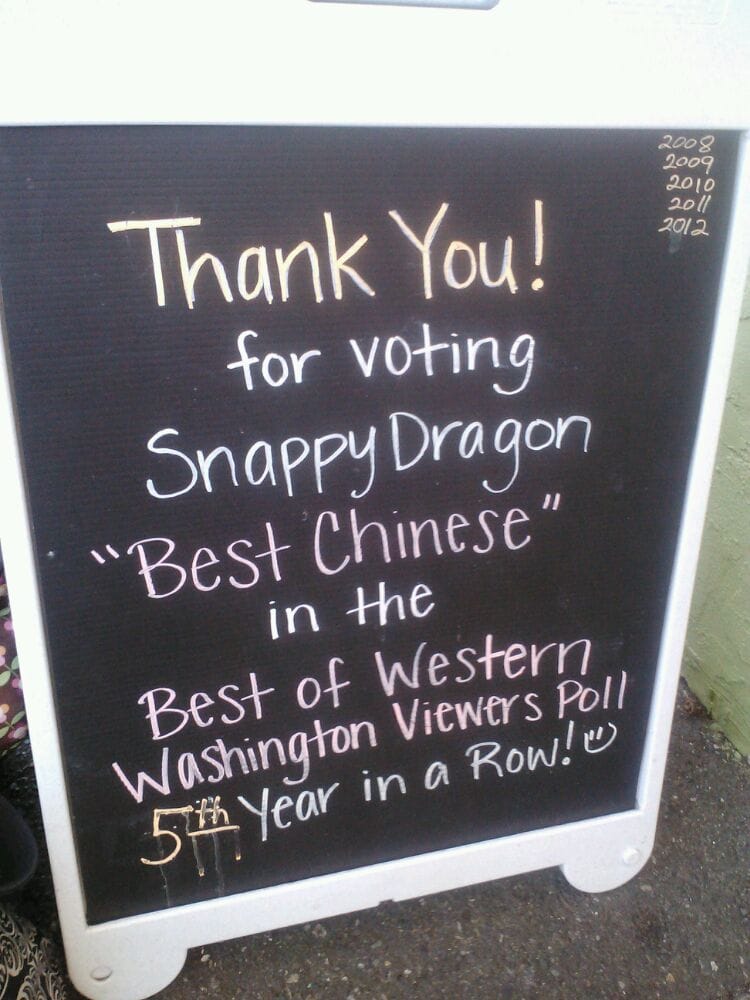 2008
2009
2010
2011
2012
Thank You!
for voting
Snappy Dragon
"Best Chinese"
in the
Best of Western
Washington Viewers Poll
5th Year in a Row!